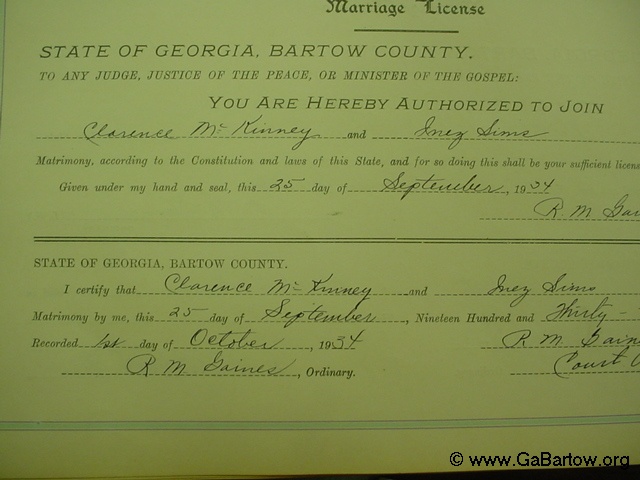 Marriage License
STATE OF GEORGIA, BARTOW COUNTY.
TO ANY JUDGE, JUSTICE OF THE PEACE, OR MINISTER OF THE GOSPEL:
YOU ARE HEREBY AUTHORIZED TO JOIN
Clarence McKinney and Inez Sims
Matrimony, according to the Constitution and laws of this State, and for so doing this shall be your sufficient
Given under my hand and seal, this 25 day of September, 1934
R. M.
STATE OF GEORGIA, BARTOW COUNTY.
I certify that Clarence McKinney and Inez Sims
Matrimony by me, this 25 day of September, Nineteen Hundred and Thirty-
Recorded 1st day of October, 1934 R M
R M Gaines, Ordinary. Court
© www.GaBartow.org